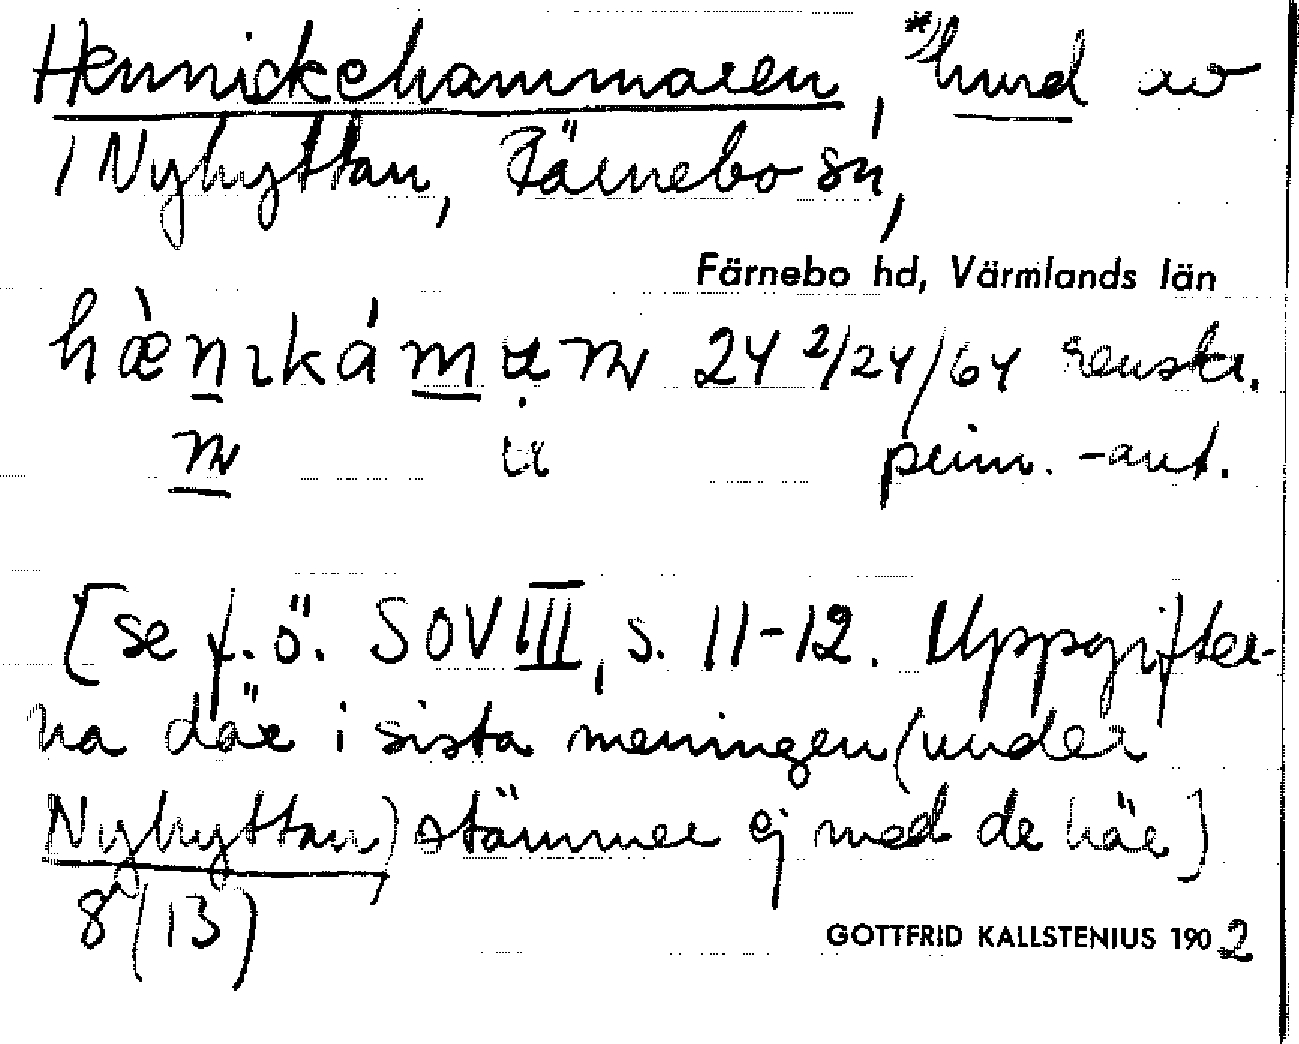 Hennickehammaren, *) hund av
i Nyhyttan, Färnebo sn,
Färnebo hd, Värmlands län
hæ̀nıkám
24 2/24/64
prim. -ant.
[se f. ö. SOV III, s. 11-12. Uppgifter-
na där i sista meningen (under
Nyhyttan) stämmer ej med de här]
8 (13)
GOTTFRID KALLSTENIUS 1902